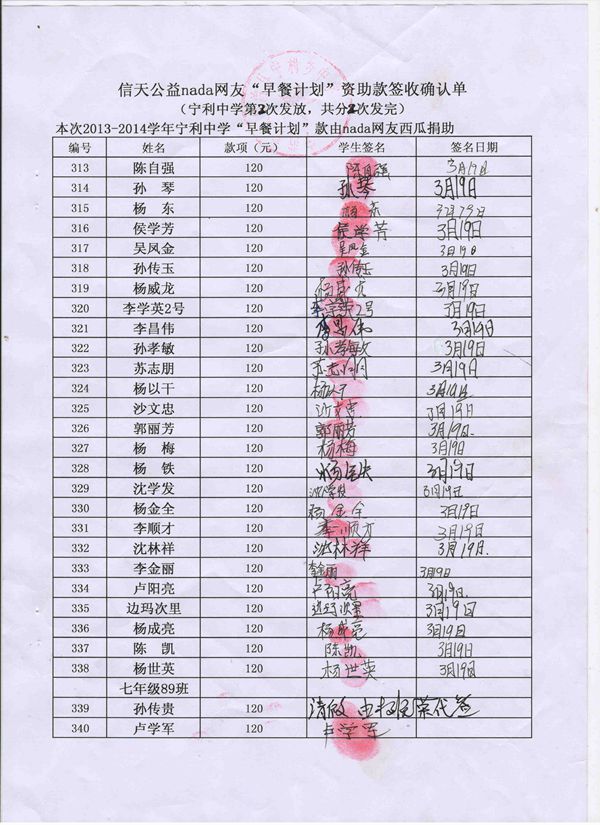 信天公益nada网友“早餐计划”资助款签收确认单
(宁利中学第2次发放，共分2次发完)
本次2013-2014学年宁利中学“早餐计划”款由nada网友西瓜捐助
编号 姓名 款项（元） 学生签名 签名日期
313 陈自强 120 陈自强 3月19日
314 孙 琴 120 孙琴 3月19日
315 杨 东 120 杨东
316 侯学芳 120 侯学芳 3月19日
317 吴凤金 120 吴凤金 3月19日
318 孙传玉 120 孙传玉 3月19日
319 杨威龙 120 3月19日
320 李学英2号 120 李学英2号 3月19日
321 李昌伟 120 李昌伟 3月19日
322 孙孝敏 120 孙孝敏 3月19日
323 苏志朋 120 苏志朋 3月19日
324 杨以干 120 杨以干 3月19日
325 沙文忠 120 沙文忠 3月19日
326 郭丽芳 120 郭丽芳 3月19日
327 杨 梅 120 杨梅 3月19日
328 杨 铁 120 杨铁 3月19日
329 沈学发 120 沈学发 3月19日
330 杨金全 120 杨金全 3月19日
331 李顺才 120 李顺才 3月19日
332 沈林祥 120 沈林祥 3月19日.
333 李金丽 120 李金丽 3月19日
334 卢阳亮 120 卢阳亮 3月19日.
335 边玛次里 120 边玛次里 3月19日
336 杨成亮 120 杨成亮 3月19日
337 陈 凯 120 陈凯 3月19日
338 杨世英 120 杨世英 3月19日
七年级89班
339 孙传贵 120 荣代签
340 卢学军 120 卢学军